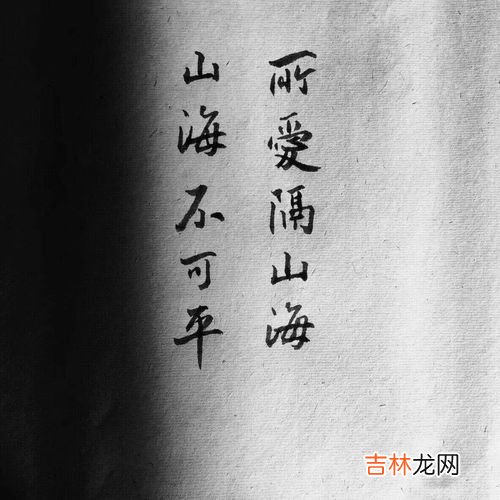 所愛隔山海
山海不可平
吉林龙网